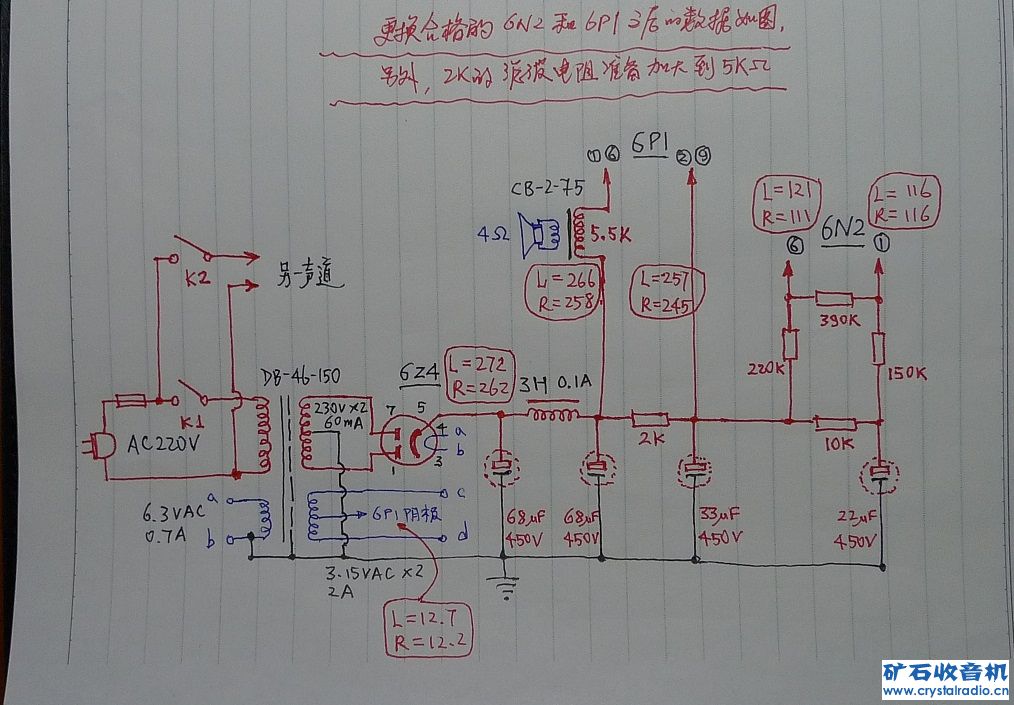 更换合格的6N2和6P1之后的数据如图.
另外，2K的滤波电阻准备加大到5KΩ
6P1
① ⑥
② ⑨
CB-2-75
4Ω
5.5K
L=121
R=111
L=116
R=116
6N2
⑥
①
K2
另一声道
L=266
R=258
L=257
R=245
390K
220K
150K
DB-46-150
6Z4
L=272
R=262
3H 0.1A
K1
230V×2
60mA
7
5
4
a
b
3
1
2K
10K
AC220V
6.3VAC
0.7A
a
b
c
6P1阴极
d
68μF
450V
68μF
450V
33μF
450V
22μF
450V
3.15VAC×2
2A
L=12.7
R=12.2
矿石收音机
www.crystalradio.cn